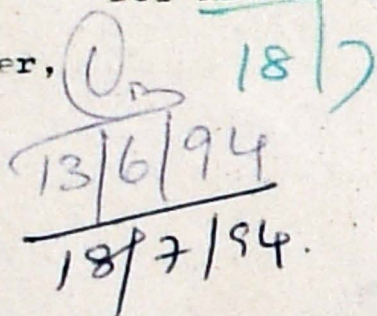 er, 18/7
13/6/94
18/7/94.